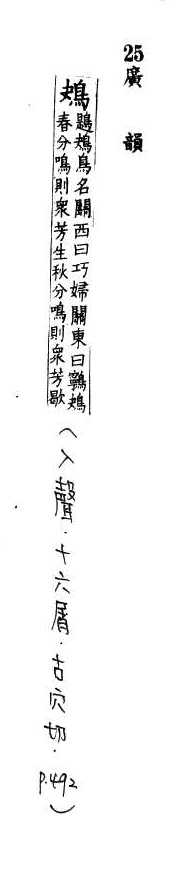 25廣韻
鴂
鶗鴂鳥名關西曰巧婦關東曰鸋鴂
春分鳴則衆芳生秋分鳴則衆芳歇
(入聲.十六屑.古穴切.P.492)